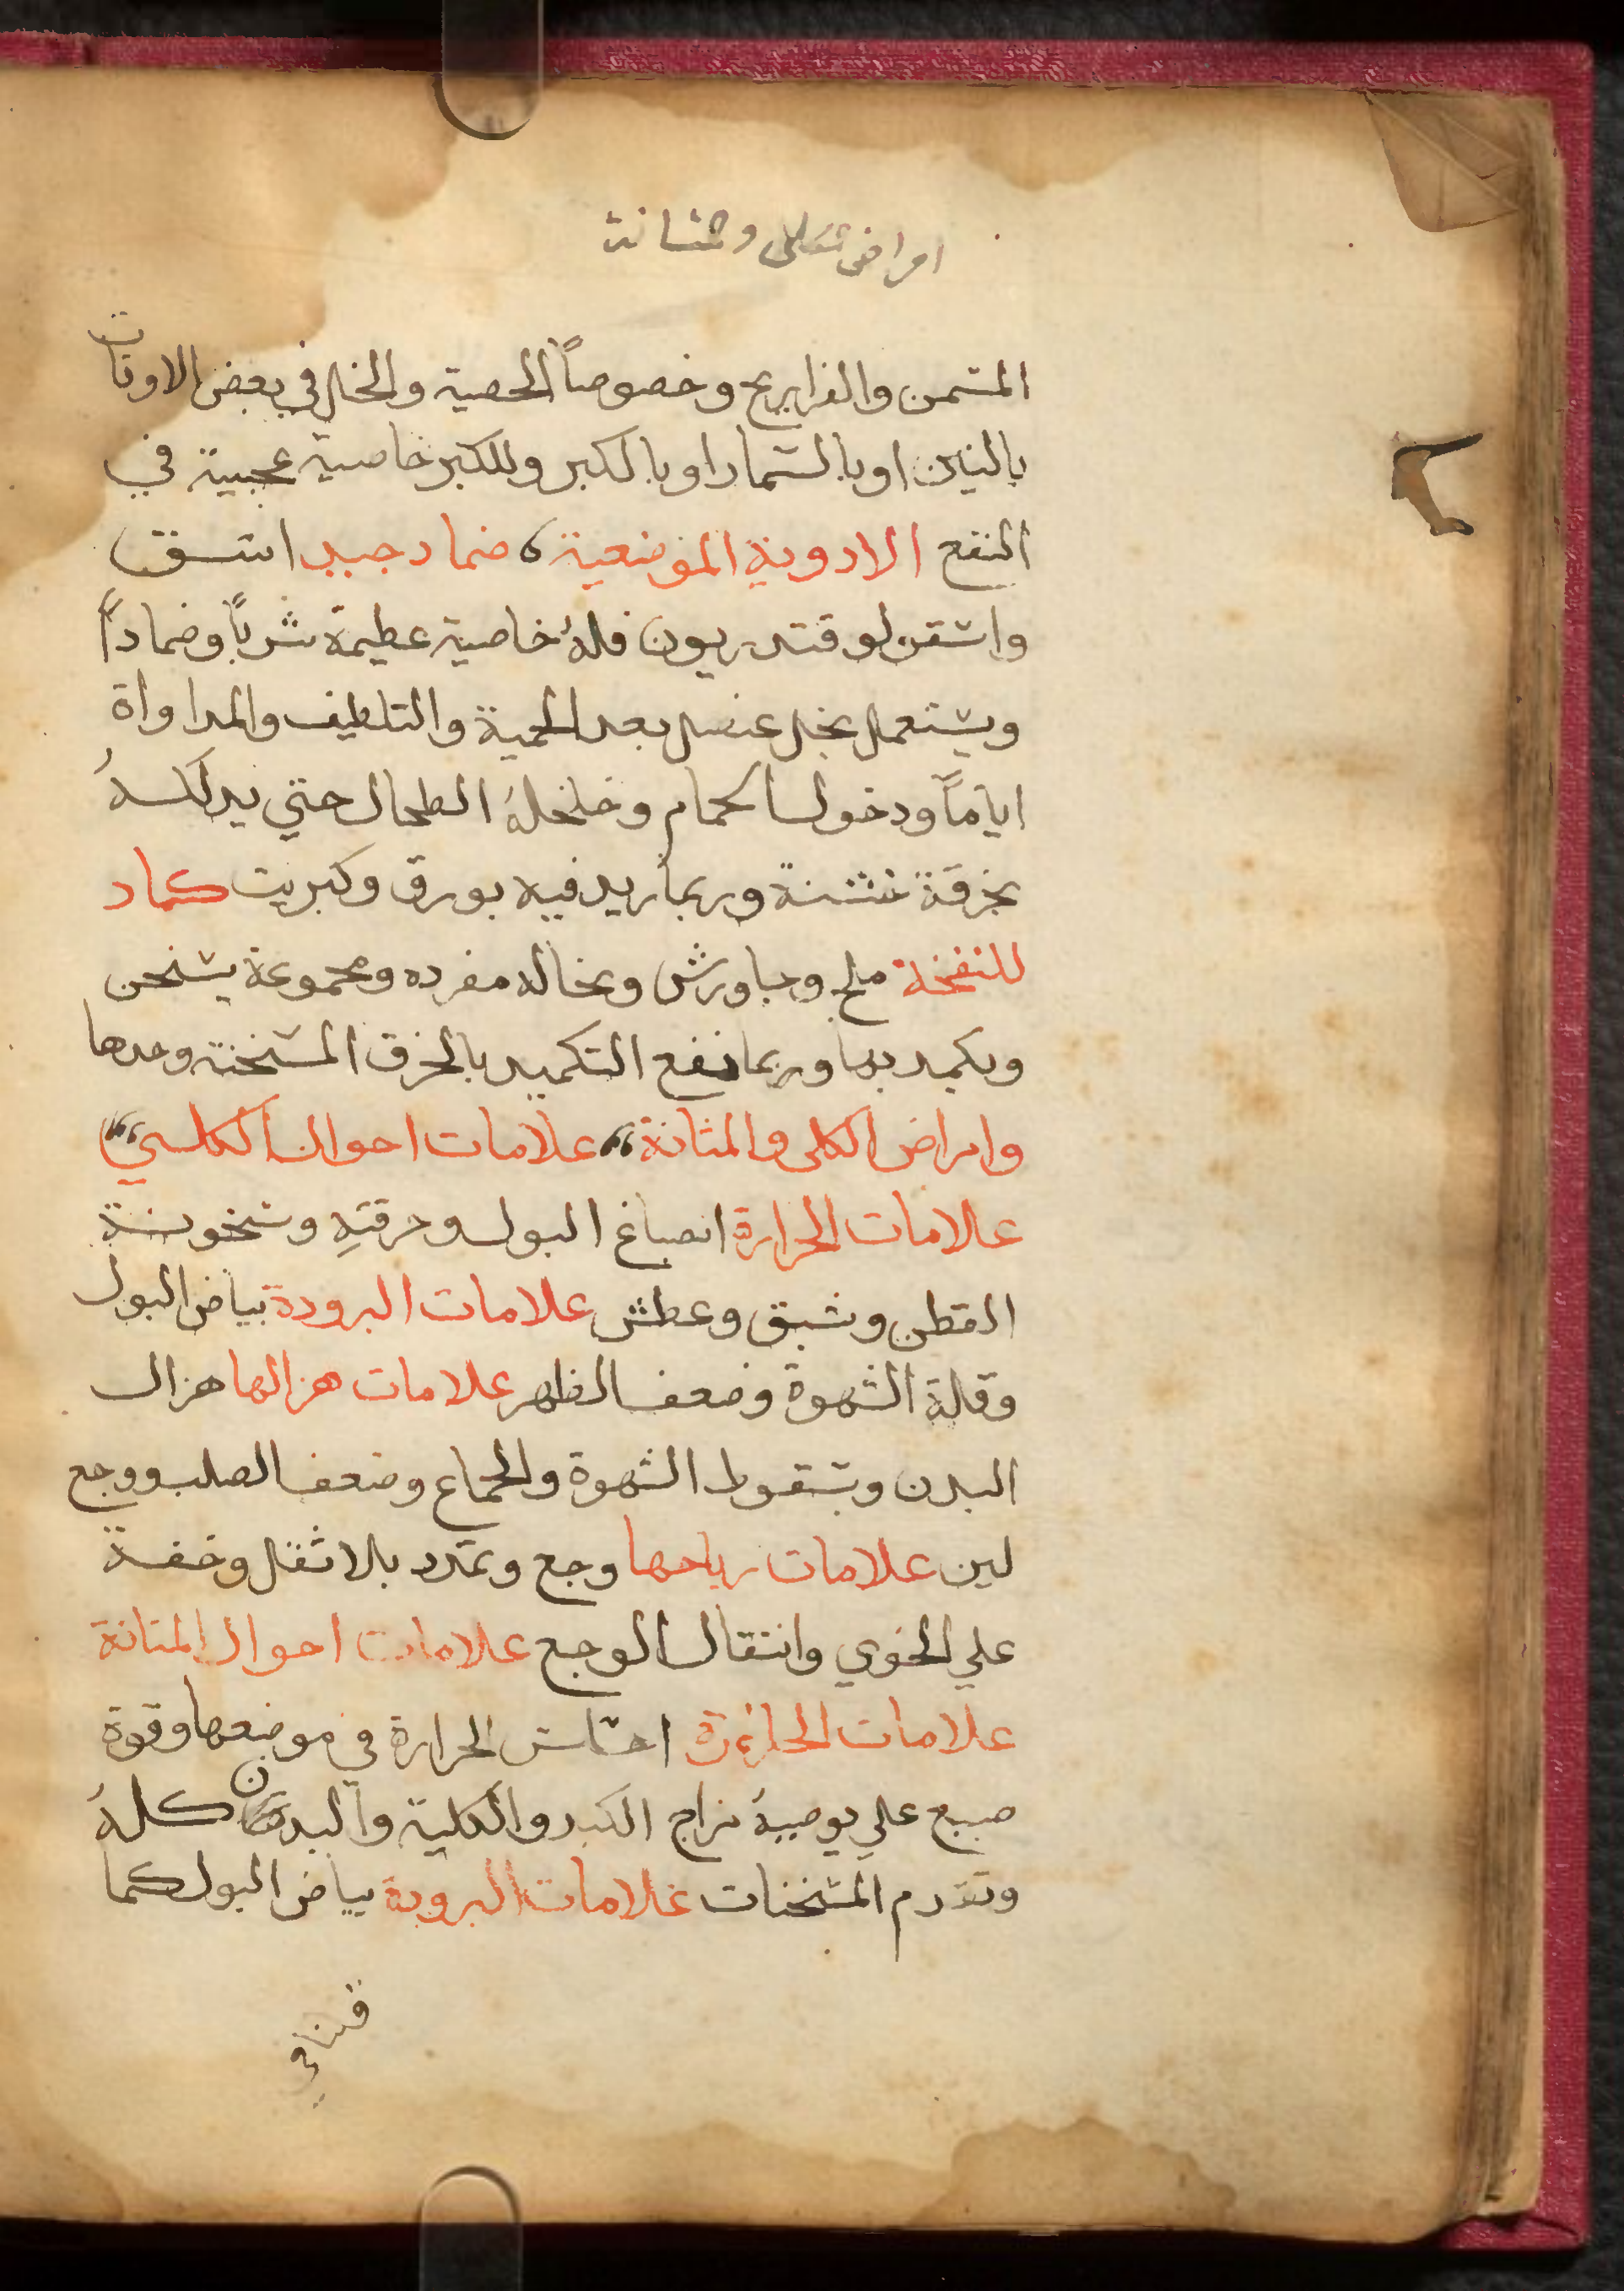 امراض كلى و مثانة
المسمن والفراريج وخصوصاً الحصية والخل في بعض الاوقات
بالتين او بالشمار او بالكبر وللكبر خاصية عجيبة في
النفع الادوية الموضعية، ضماد جيد اشق
واسقولوقندريون فلهُ خاصية عظيمة شرباً وضماداً
ويستعمل بخل عنصل بعد الحمية والتلطيف والمداواة
اياماً ودخول الحمام وخلخلة الطحال حتي يدلكهُ
بخرقة خشنة وربما زيد فيه بورق وكبريت كماد
للنفخة ملح وجاورش ونخاله مفرده ومجموعة يسخن
ويكمد بها وربما نفع التكميد بالخرق المسخنة وحدها
وامراض الكلى والمثانة، علامات احوال الكلي
علامات الحرارة انصباغ البول وحرقتهِ وسخونة
القطن وشبق وعطش علامات البرودة بياض البول
وقلة الشهوة وضعف الظهر علامات هزالها هزال
البدن وسقوط الشهوة والجماع وضعف الصلب ووجع
لين علامات رياحها وجع وتمدد بلا ثقل وخفة
علي الخوي وانتقال الوجع علامات احوال المثانة
علامات الحارة احساس الحرارة في موضعها وقوة
صبغ علي يوجبهُ مزاج الكبد والكلية والبدن كلهُ
وتقدم المسخنات علامات البرودة بياض البول كما